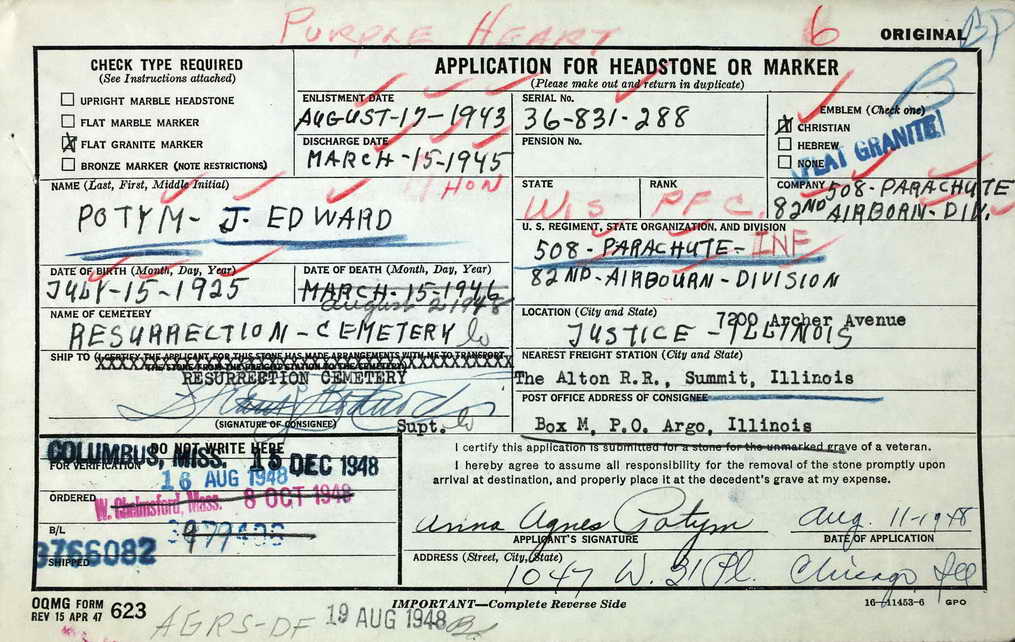 PURPLE HEART
6
ORIGINAL
BP
B
CHECK TYPE REQUIRED
(See Instructions attached)
UPRIGHT MARBLE HEADSTONE
FLAT MARBLE MARKER
X FLAT GRANITE MARKER
BRONZE MARKER (NOTE RESTRICTIONS)
APPLICATION FOR HEADSTONE OR MARKER
(Please make out and return in duplicate)
ENLISTMENT DATE
AUGUST-17-1943
DISCHARGE DATE
MARCH-15-1945
HON
SERIAL No.
36-831-288
PENSION No.
EMBLEM (Check one)
X CHRISTIAN
HEBREW
NONE
FLAT GRANITE
NAME (Last, First, Middle Initial)
POTYM- J. EDWARD
STATE
Wis
RANK
PFC.
COMPANY
508-PARACHUTE
82ND AIRBORN-DIV.
U. S. REGIMENT, STATE ORGANIZATION, AND DIVISION
508-PARACHUTE-INF
82ND-AIRBOURN-DIVISION
DATE OF BIRTH (Month, Day, Year)
JULY-15-1925
DATE OF DEATH (Month, Day, Year)
MARCH-15-1946
August 2 1948
NAME OF CEMETERY
RESURRECTION-CEMETERY
LOCATION (City and State)
7200 Archer Avenue
JUSTICE-ILLINOIS
SHIP TO (I CERTIFY THE APPLICANT FOR THIS STONE HAS MADE ARRANGEMENTS WITH ME TO TRANSPORT
THE STONE FROM THE FREIGHT STATION TO THE CEMETERY)
RESURRECTION CEMETERY
(SIGNATURE OF CONSIGNEE)
Supt.
NEAREST FREIGHT STATION (City and State)
The Alton R.R., Summit, Illinois
POST OFFICE ADDRESS OF CONSIGNEE
Box M, P.O. Argo, Illinois
DO NOT WRITE HERE
COLUMBUS, MISS. 15 DEC 1948
FOR VERIFICATION
16 AUG 1948
ORDERED
W. Chelmsford, Mass. 8 OCT 1948
B/L
3766082
SHIPPED
I certify this application is submitted for a stone for the unmarked grave of a veteran.
I hereby agree to assume all responsibility for the removal of the stone promptly upon
arrival at destination, and properly place it at the decedent's grave at my expense.
Anna Agnes Potym
APPLICANT'S SIGNATURE
Aug. 11-1948
DATE OF APPLICATION
ADDRESS (Street, City, State)
1047 W. 31 Pl. Chicago Ill
OQMG FORM
REV 15 APR 47 623
IMPORTANT—Complete Reverse Side
16—11453-6 GPO
AGRS-DF 19 AUG 1948